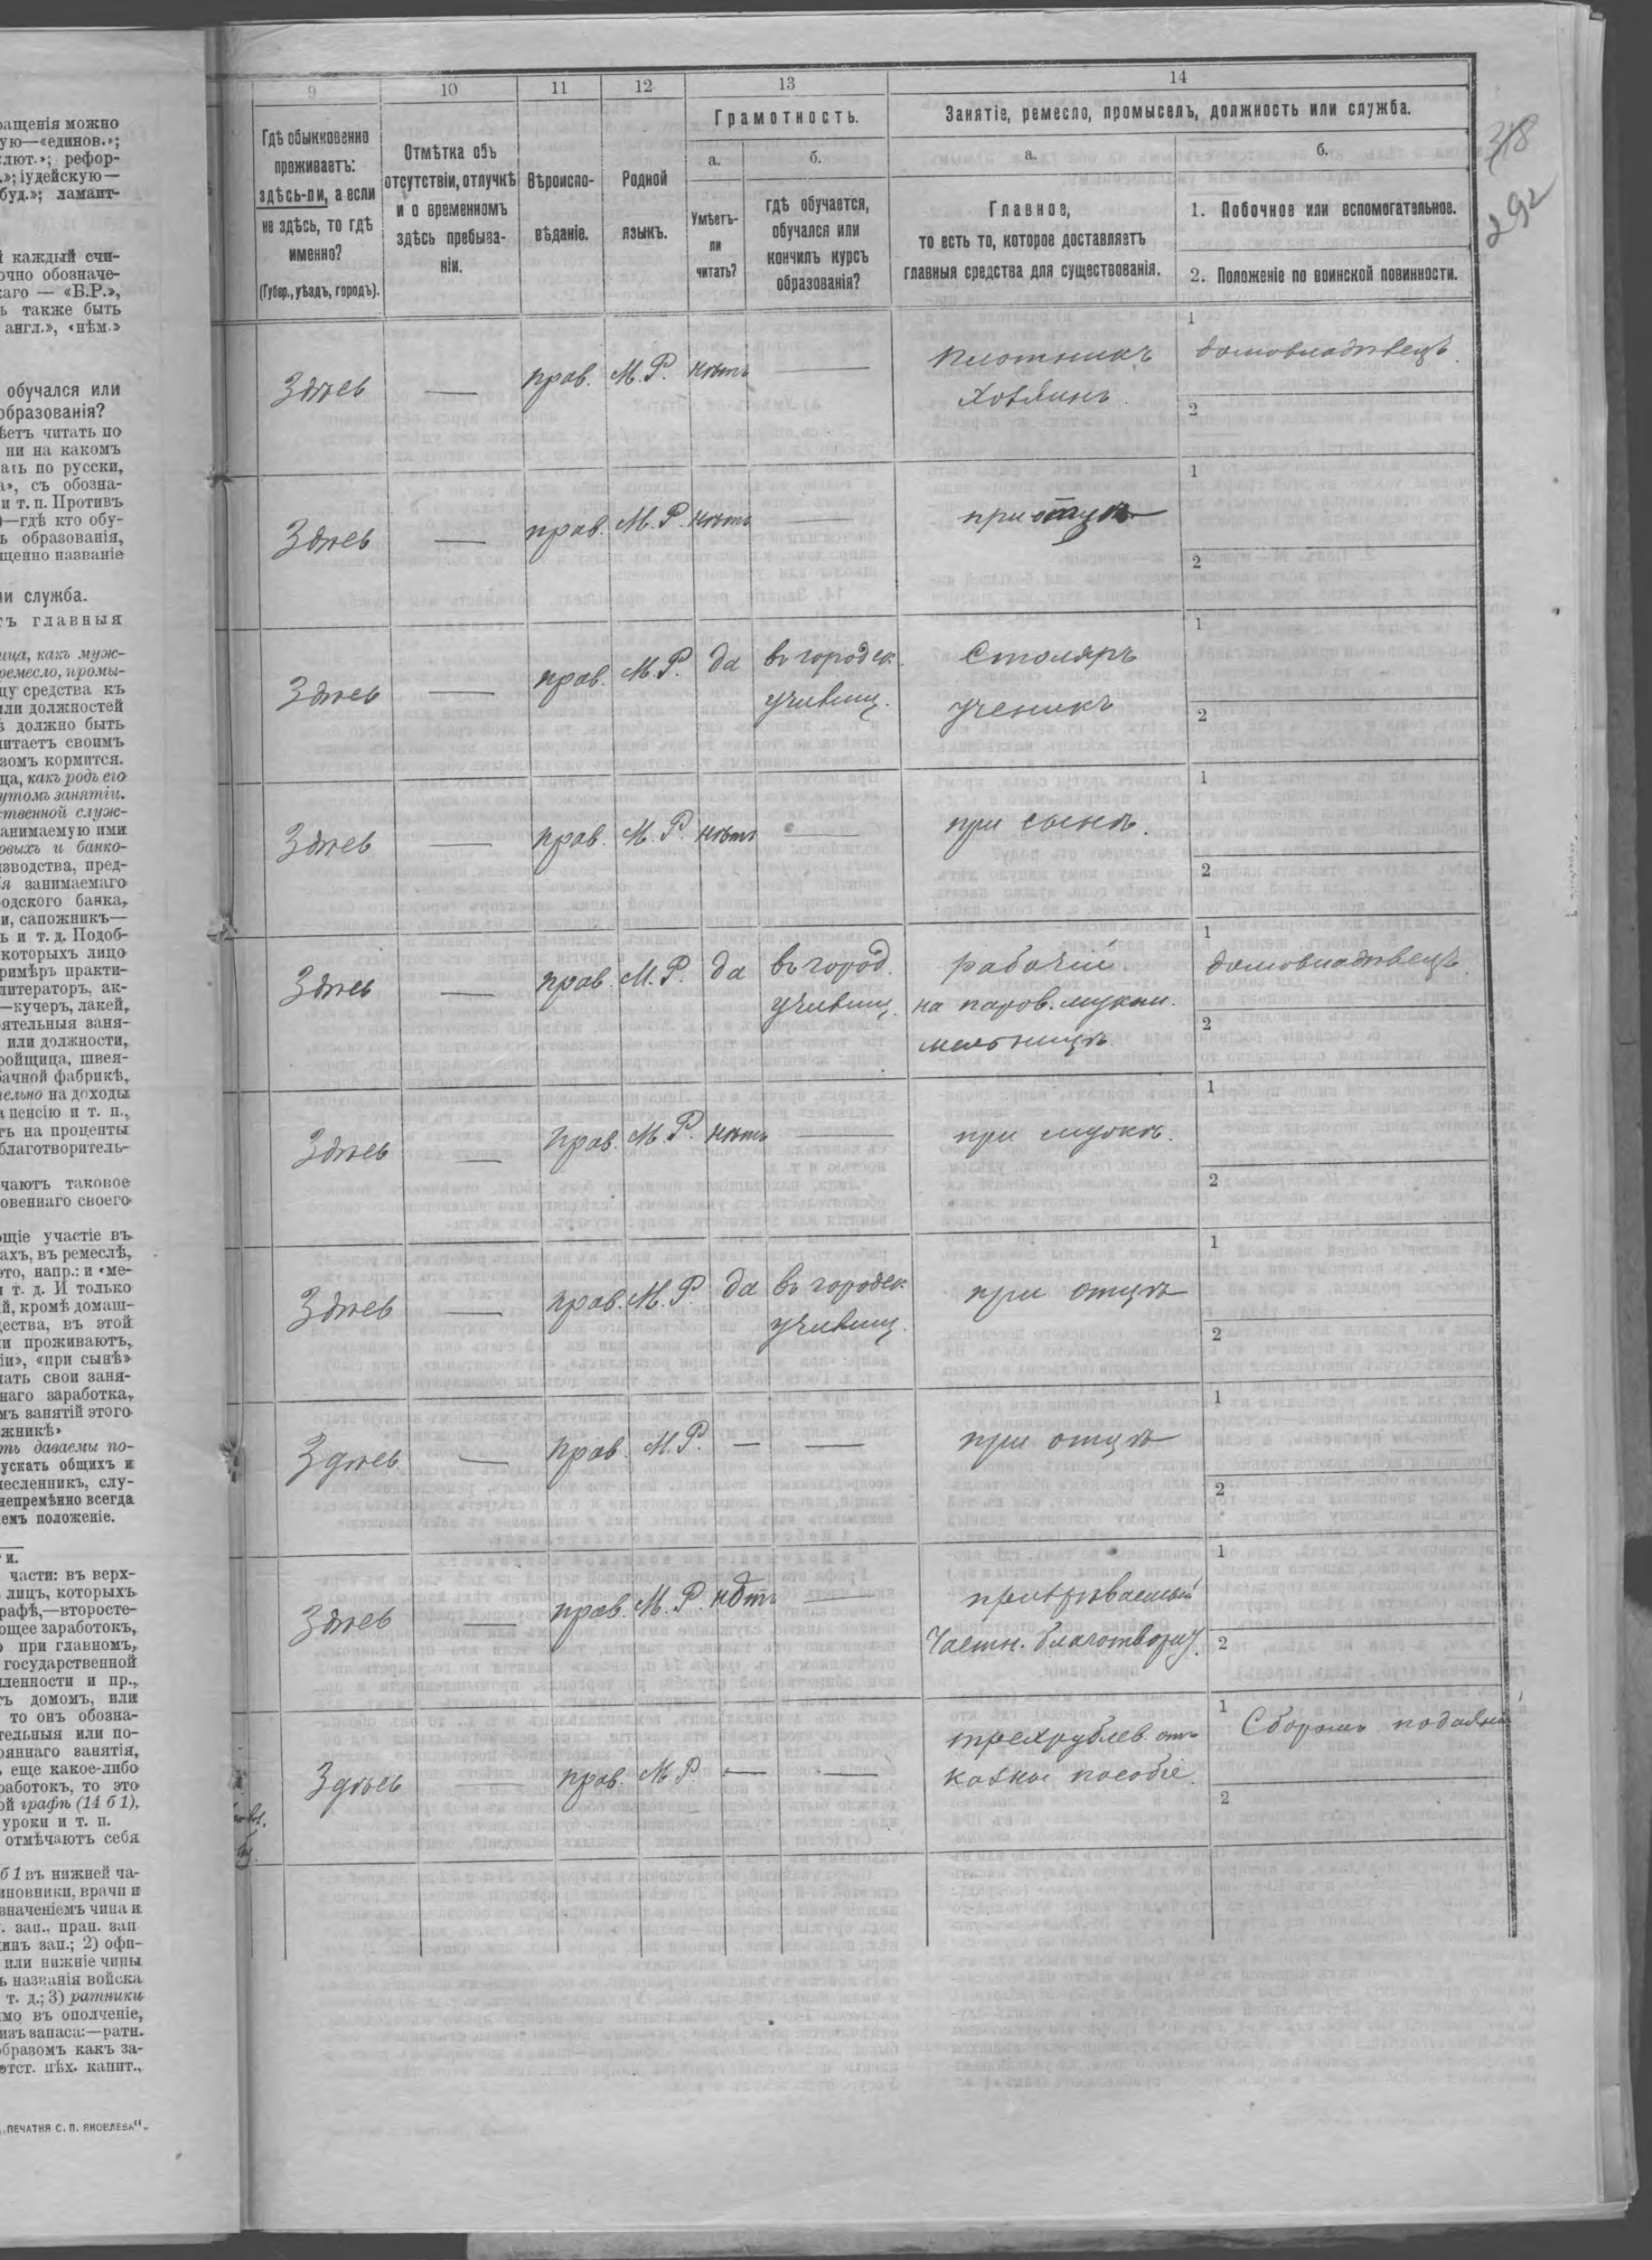 ращенія можно
ую—«единов.»;
лют.»; рефор-
.»; іудейскую—
буд.»; ламаит-
каждый счи-
очно обозначе-
каго — «В.Р.»,
ъ также быть
англ.», «нѣм.»
обучался или
образованія?
ѣетъ читать по
ни на какомъ
ать по русски,
съ обозна-
и т. п. Противъ
)—гдѣ кто обу-
ъ образованія,
щенно названіе
ли служба.
ъ главныя
ица, какъ муж-
ремесло, промы-
цу средства къ
или должностей
должно быть
читаетъ своимъ
зомъ кормится.
ца, какъ родъ его
утомъ занятіи.
ственной служ-
анимаемую ими
овыхъ и банко-
изводства, пред-
я занимаемаго
одского банка,
и, сапожникъ—
ь и т. д. Подоб-
которыхъ лицо
римѣръ практи-
литераторъ, ак-
—кучеръ, лакей,
ятельныя заня-
или должности,
ройщица, швея-
бачной фабрикѣ,
тельно на доходы
пенсію и т. п.,
ъ на проценты
благотворитель-
чаютъ таковое
овеннаго своего
ощіе участіе въ
ахъ, въ ремеслѣ,
это, напр.: и «ме-
т. д. И только
й, кромѣ домаш-
ества, въ этой
и проживаютъ,
іи», «при сынѣ»
ать свои заня-
наго заработка,
мъ занятій этого
жникѣ»
ть даваемы по-
ускать общихъ и
месленник, слу-
непремѣнно всегда
емъ положеніе.
и.
части: въ верх-
лицъ, которыхъ
рафѣ,—второсте-
ющее заработокъ,
при главномъ,
государственной
ленности и пр.,
ъ домомъ, или
то онъ обозна-
тельныя или по-
ояннаго занятія,
еще какое-либо
работокъ, то это
ой графѣ (14 б 1),
уроки и т. п.
отмѣчаютъ себя
б 1 въ нижней ча-
иновники, врачи и
значеніемъ чина и
. зап., прап. зап
инъ зап.; 2) офи-
или нижніе чины
ъ названія войска
т. д.; 3) ратники
мо въ ополченіе,
изъ запаса:—ратн.
образомъ какъ за-
отст. пѣх. капит.,
„ПЕЧАТНЯ С. П. ЯКОВЛЕВА“.
9 10 11 12 13 14
Гдѣ обыкновенно
проживаетъ:
здѣсь-ли, а если
не здѣсь, то гдѣ
именно?
(Губер., уѣздъ, городъ).
Отмѣтка объ
отсутствіи, отлучкѣ
и о временномъ
здѣсь пребыва-
ніи.
Вѣроиспо-
вѣданіе.
Родной
языкъ.
Грамотность.
а.
Умѣетъ-
ли
читать?
б.
гдѣ обучается,
обучался или
кончилъ курсъ
образованія?
Занятіе, ремесло, промыселъ, должность или служба.
а.
Главное,
то есть то, которое доставляетъ
главныя средства для существованія.
б.
1. Побочное или вспомогательное.
2. Положеніе по воинской повинности.
318
292
Здѣсь — прав. М.Р. нѣтъ — Плотникъ 1 домовладѣлецъ.
Хозяинъ. 2
Здѣсь — прав. М.Р. нѣтъ — при отцѣ 1
2
Здѣсь — прав. М.Р. да въ городск. Столяръ 1
училищ. ученикъ 2
Здѣсь — прав. М.Р. нѣтъ — при сынѣ. 1
2
Здѣсь — прав. М.Р. да въ город. рабочій 1 домовладѣлецъ.
училищ. на паров. муком. 2
мельницѣ.
Здѣсь — прав. М.Р. нѣтъ — при мужѣ. 1
2
Здѣсь — прав. М.Р. да въ городск. при отцѣ 1
училищ. 2
Здѣсь — прав. М.Р. — — при отцѣ 1
2
Здѣсь — прав. М.Р. нѣтъ — призрѣваемый 1
Частн. благотворит. 2
Здѣсь — прав. М.Р. — — трехрублев. отъ 1 Сборомъ подаяній
казны пособіе. 2